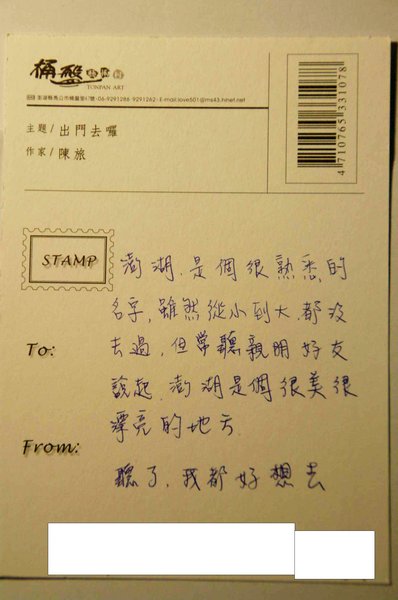 桶盤藝術村
TONPAN ART
澎湖縣馬公市桶盤里17號·06-9291286·9291262·E-mail:love501@ms43.hinet.net
4710765331078
主題/出門去囉
作家/陳旅
STAMP
To:
From:
澎湖,是個很熟悉的
名字,雖然從小到大,都沒
去過,但常聽親朋好友
說起,澎湖是個很美很
漂亮的地方.
聽了,我都好想去